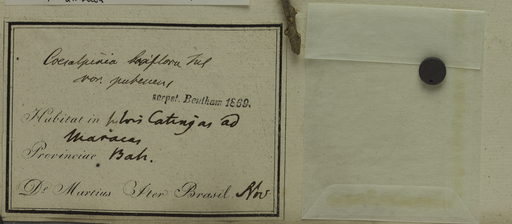 Caesalpinia laxiflora Tul
var. pubescens
scrpst. Bentham 1869.
Habitat in silvis Catingas ad
Maracas
Provinciae Bah.
Dr Martius Iter Brasil. Nov